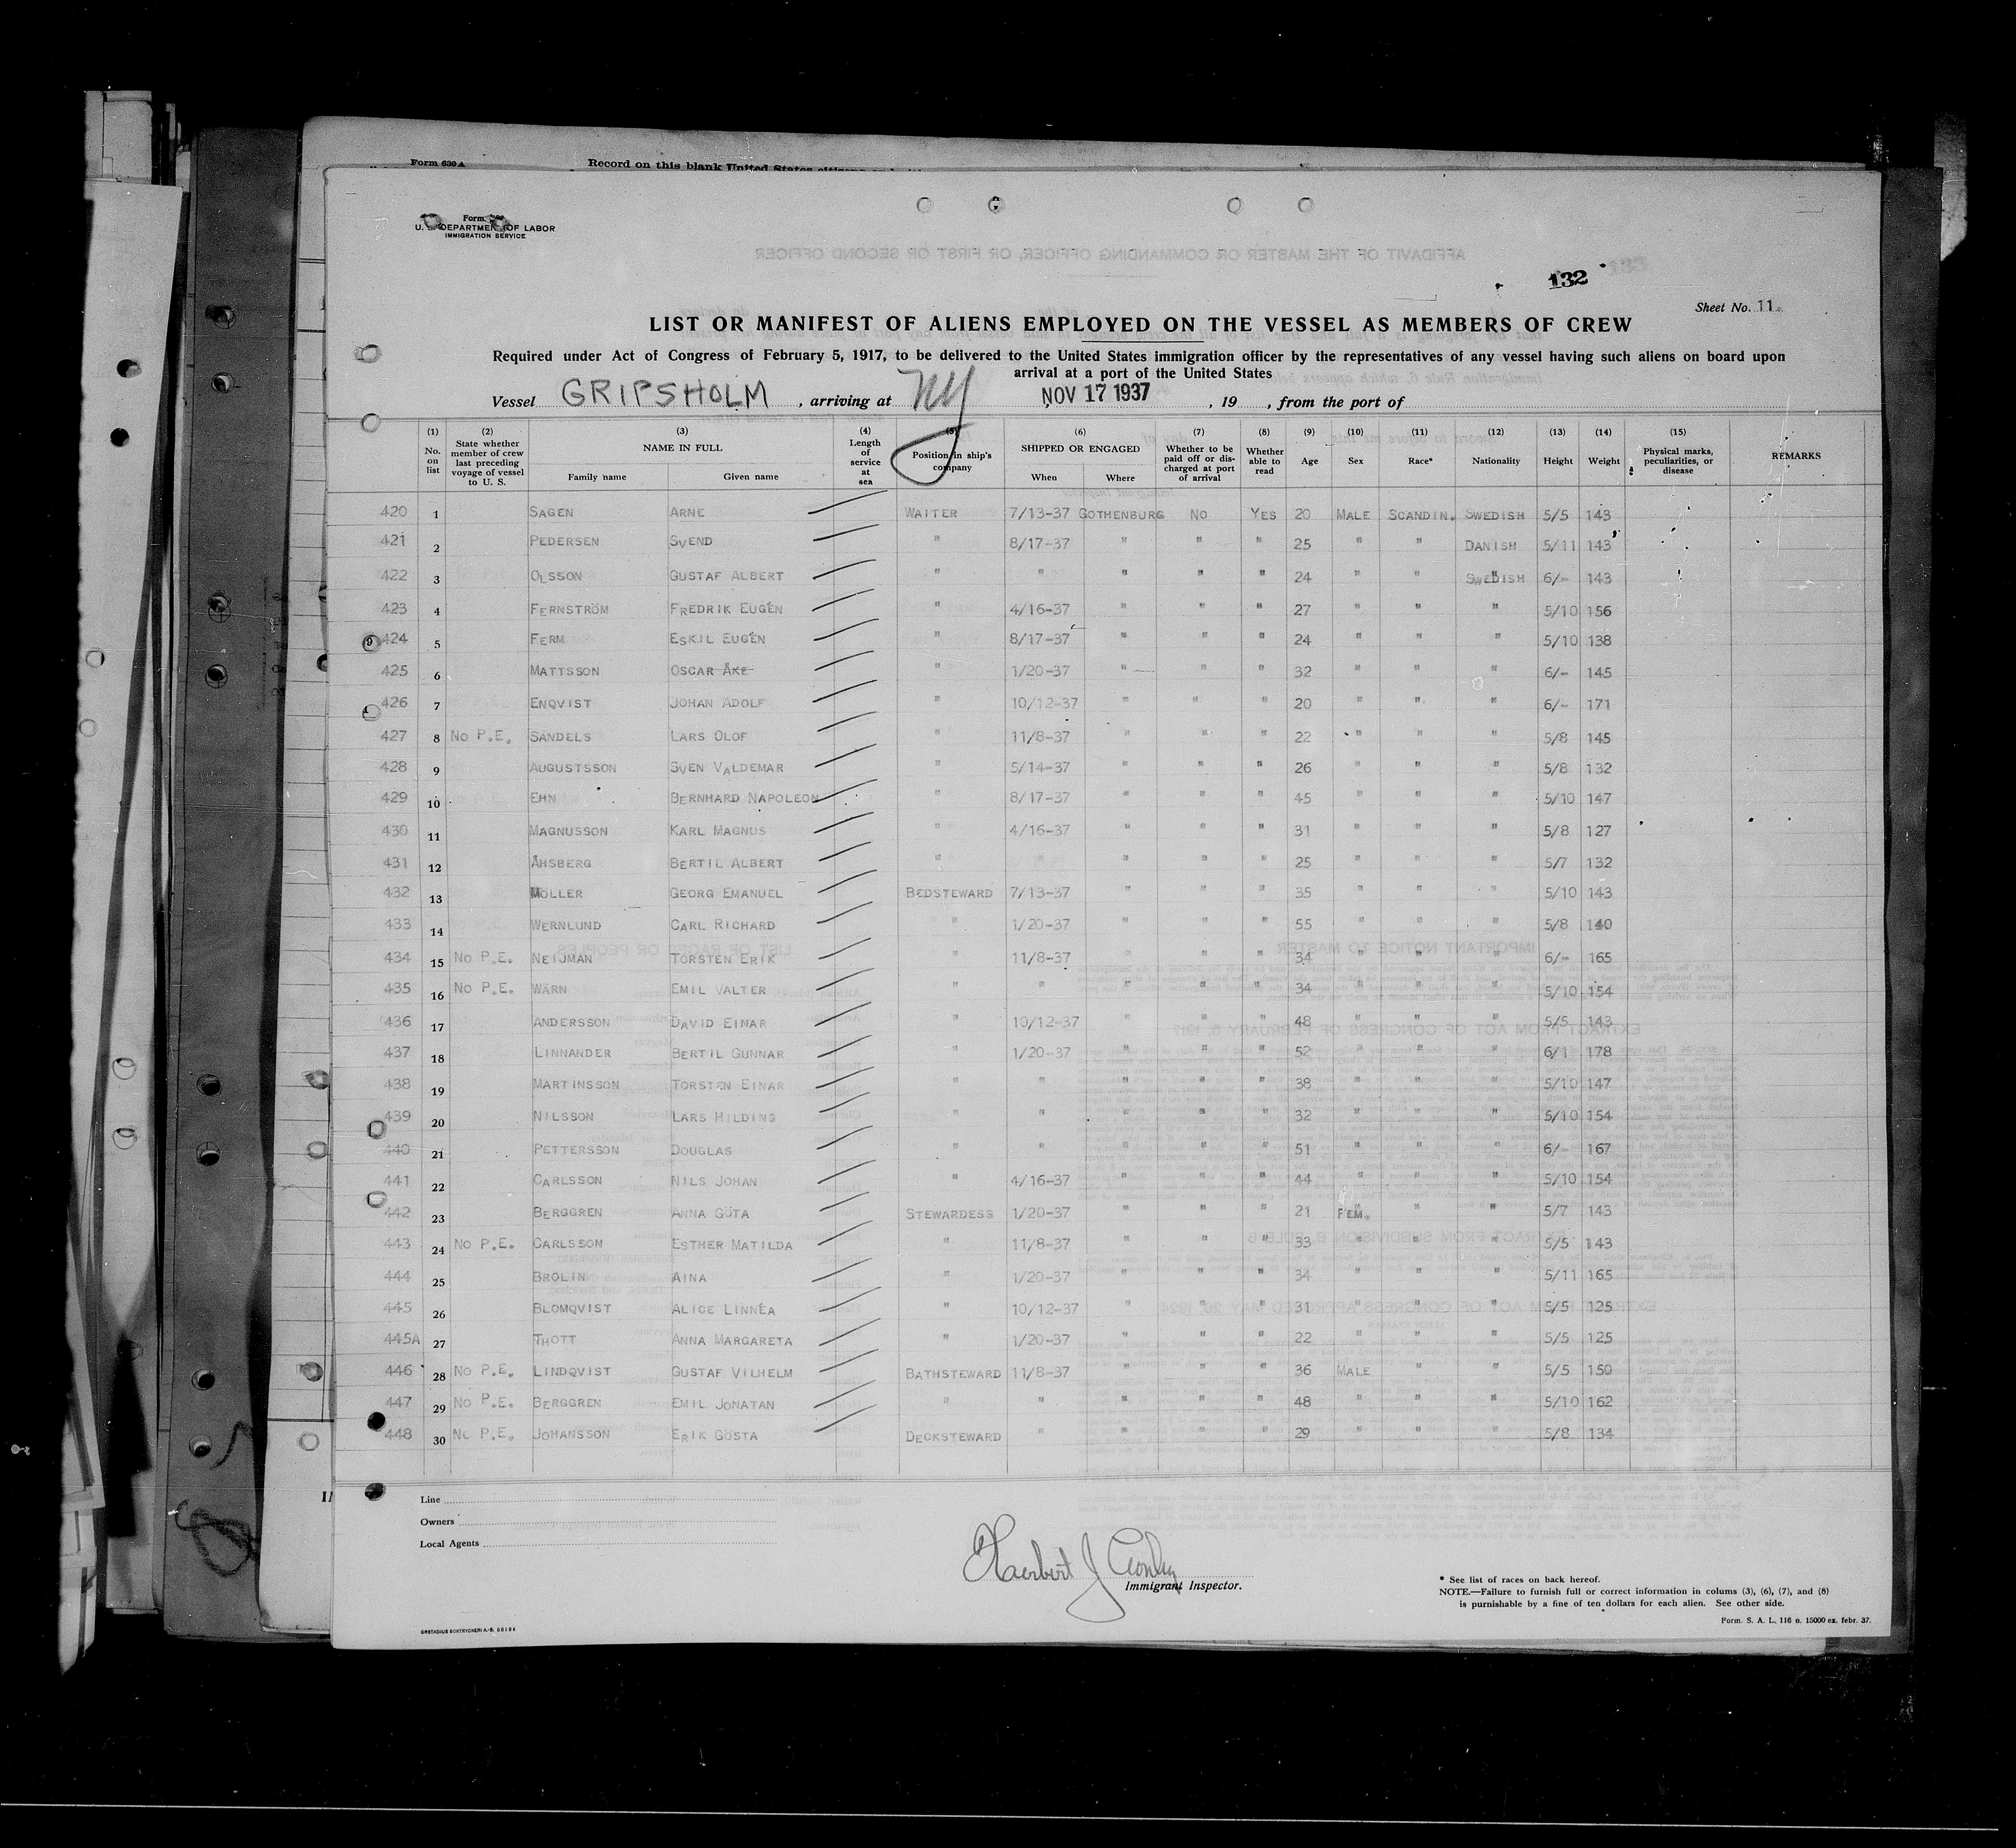 Form 630 A
Record on this blank United States citizens
Form
U. S. DEPARTMENT OF LABOR
IMMIGRATION SERVICE
132
Sheet No. 11.
LIST OR MANIFEST OF ALIENS EMPLOYED ON THE VESSEL AS MEMBERS OF CREW
Required under Act of Congress of February 5, 1917, to be delivered to the United States immigration officer by the representatives of any vessel having such aliens on board upon
arrival at a port of the United States
Vessel GRIPSHOLM, arriving at NY NOV 17 1937, 19 , from the port of
(1) No. on list (2) State whether member of crew last preceding voyage of vessel to U. S. (3) NAME IN FULL Family name Given name (4) Length of service at sea (5) Position in ship's company (6) SHIPPED OR ENGAGED When Where (7) Whether to be paid off or discharged at port of arrival (8) Whether able to read (9) Age (10) Sex (11) Race* (12) Nationality (13) Height (14) Weight (15) Physical marks, peculiarities, or disease REMARKS
420 1 SAGEN ARNE WAITER 7/13-37 GOTHENBURG NO YES 20 MALE SCANDIN. SWEDISH 5/5 143
421 2 PEDERSEN SVEND " 8/17-37 " " " 25 " " DANISH 5/11 143
422 3 OLSSON GUSTAF ALBERT " " " " " 24 " " SWEDISH 6/- 143
423 4 FERNSTRÖM FREDRIK EUGÉN " 4/16-37 " " " 27 " " " 5/10 156
424 5 FERM ESKIL EUGÉN " 8/17-37 " " " 24 " " " 5/10 138
425 6 MATTSSON OSCAR ÅKE " 1/20-37 " " " 32 " " " 6/- 145
426 7 ENQVIST JOHAN ADOLF " 10/12-37 " " " 20 " " " 6/- 171
427 8 NO P.E. SANDELS LARS OLOF " 11/8-37 " " " 22 " " " 5/8 145
428 9 AUGUSTSSON SVEN VALDEMAR " 5/14-37 " " " 26 " " " 5/8 132
429 10 EHN BERNHARD NAPOLEON " 8/17-37 " " " 45 " " " 5/10 147
430 11 MAGNUSSON KARL MAGNUS " 4/16-37 " " " 31 " " " 5/8 127
431 12 ÅHSBERG BERTIL ALBERT " " " " " 25 " " " 5/7 132
432 13 MÖLLER GEORG EMANUEL BEDSTEWARD 7/13-37 " " " 35 " " " 5/10 143
433 14 WERNLUND CARL RICHARD " 1/20-37 " " " 55 " " " 5/8 140
434 15 NO P.E. NEIJMAN TORSTEN ERIK " 11/8-37 " " " 34 " " " 6/- 165
435 16 NO P.E. WÄRN EMIL VALTER " " " " " 34 " " " 5/10 154
436 17 ANDERSSON DAVID EINAR " 10/12-37 " " " 48 " " " 5/5 143
437 18 LINNANDER BERTIL GUNNAR " 1/20-37 " " " 52 " " " 6/1 178
438 19 MARTINSSON TORSTEN EINAR " " " " " 38 " " " 5/10 147
439 20 NILSSON LARS HILDING " " " " " 32 " " " 5/10 154
440 21 PETTERSSON DOUGLAS " " " " " 51 " " " 6/- 167
441 22 CARLSSON NILS JOHAN " 4/16-37 " " " 44 " " " 5/10 154
442 23 BERGGREN ANNA GÖTA STEWARDESS 1/20-37 " " " 21 FEM. " " 5/7 143
443 24 NO P.E. CARLSSON ESTHER MATILDA " 11/8-37 " " " 33 " " " 5/5 143
444 25 BROLIN AINA " 1/20-37 " " " 34 " " " 5/11 165
445 26 BLOMQVIST ALICE LINNÉA " 10/12-37 " " " 31 " " " 5/5 125
445A 27 THOTT ANNA MARGARETA " 1/20-37 " " " 22 " " " 5/5 125
446 28 NO P.E. LINDQVIST GUSTAF VILHELM BATHSTEWARD 11/8-37 " " " 36 MALE " " 5/5 150
447 29 NO P.E. BERGGREN EMIL JONATAN " " " " " 48 " " " 5/10 162
448 30 NO P.E. JOHANSSON ERIK GÖSTA DECKSTEWARD " " " " 29 " " " 5/8 134
Line
Owners
Local Agents
Herbert J
Immigrant Inspector.
* See list of races on back hereof.
NOTE.—Failure to furnish full or correct information in colums (3), (6), (7), and (8)
is punishable by a fine of ten dollars for each alien. See other side.
Form. S. A. L. 116 n. 15000 ex. febr. 37.